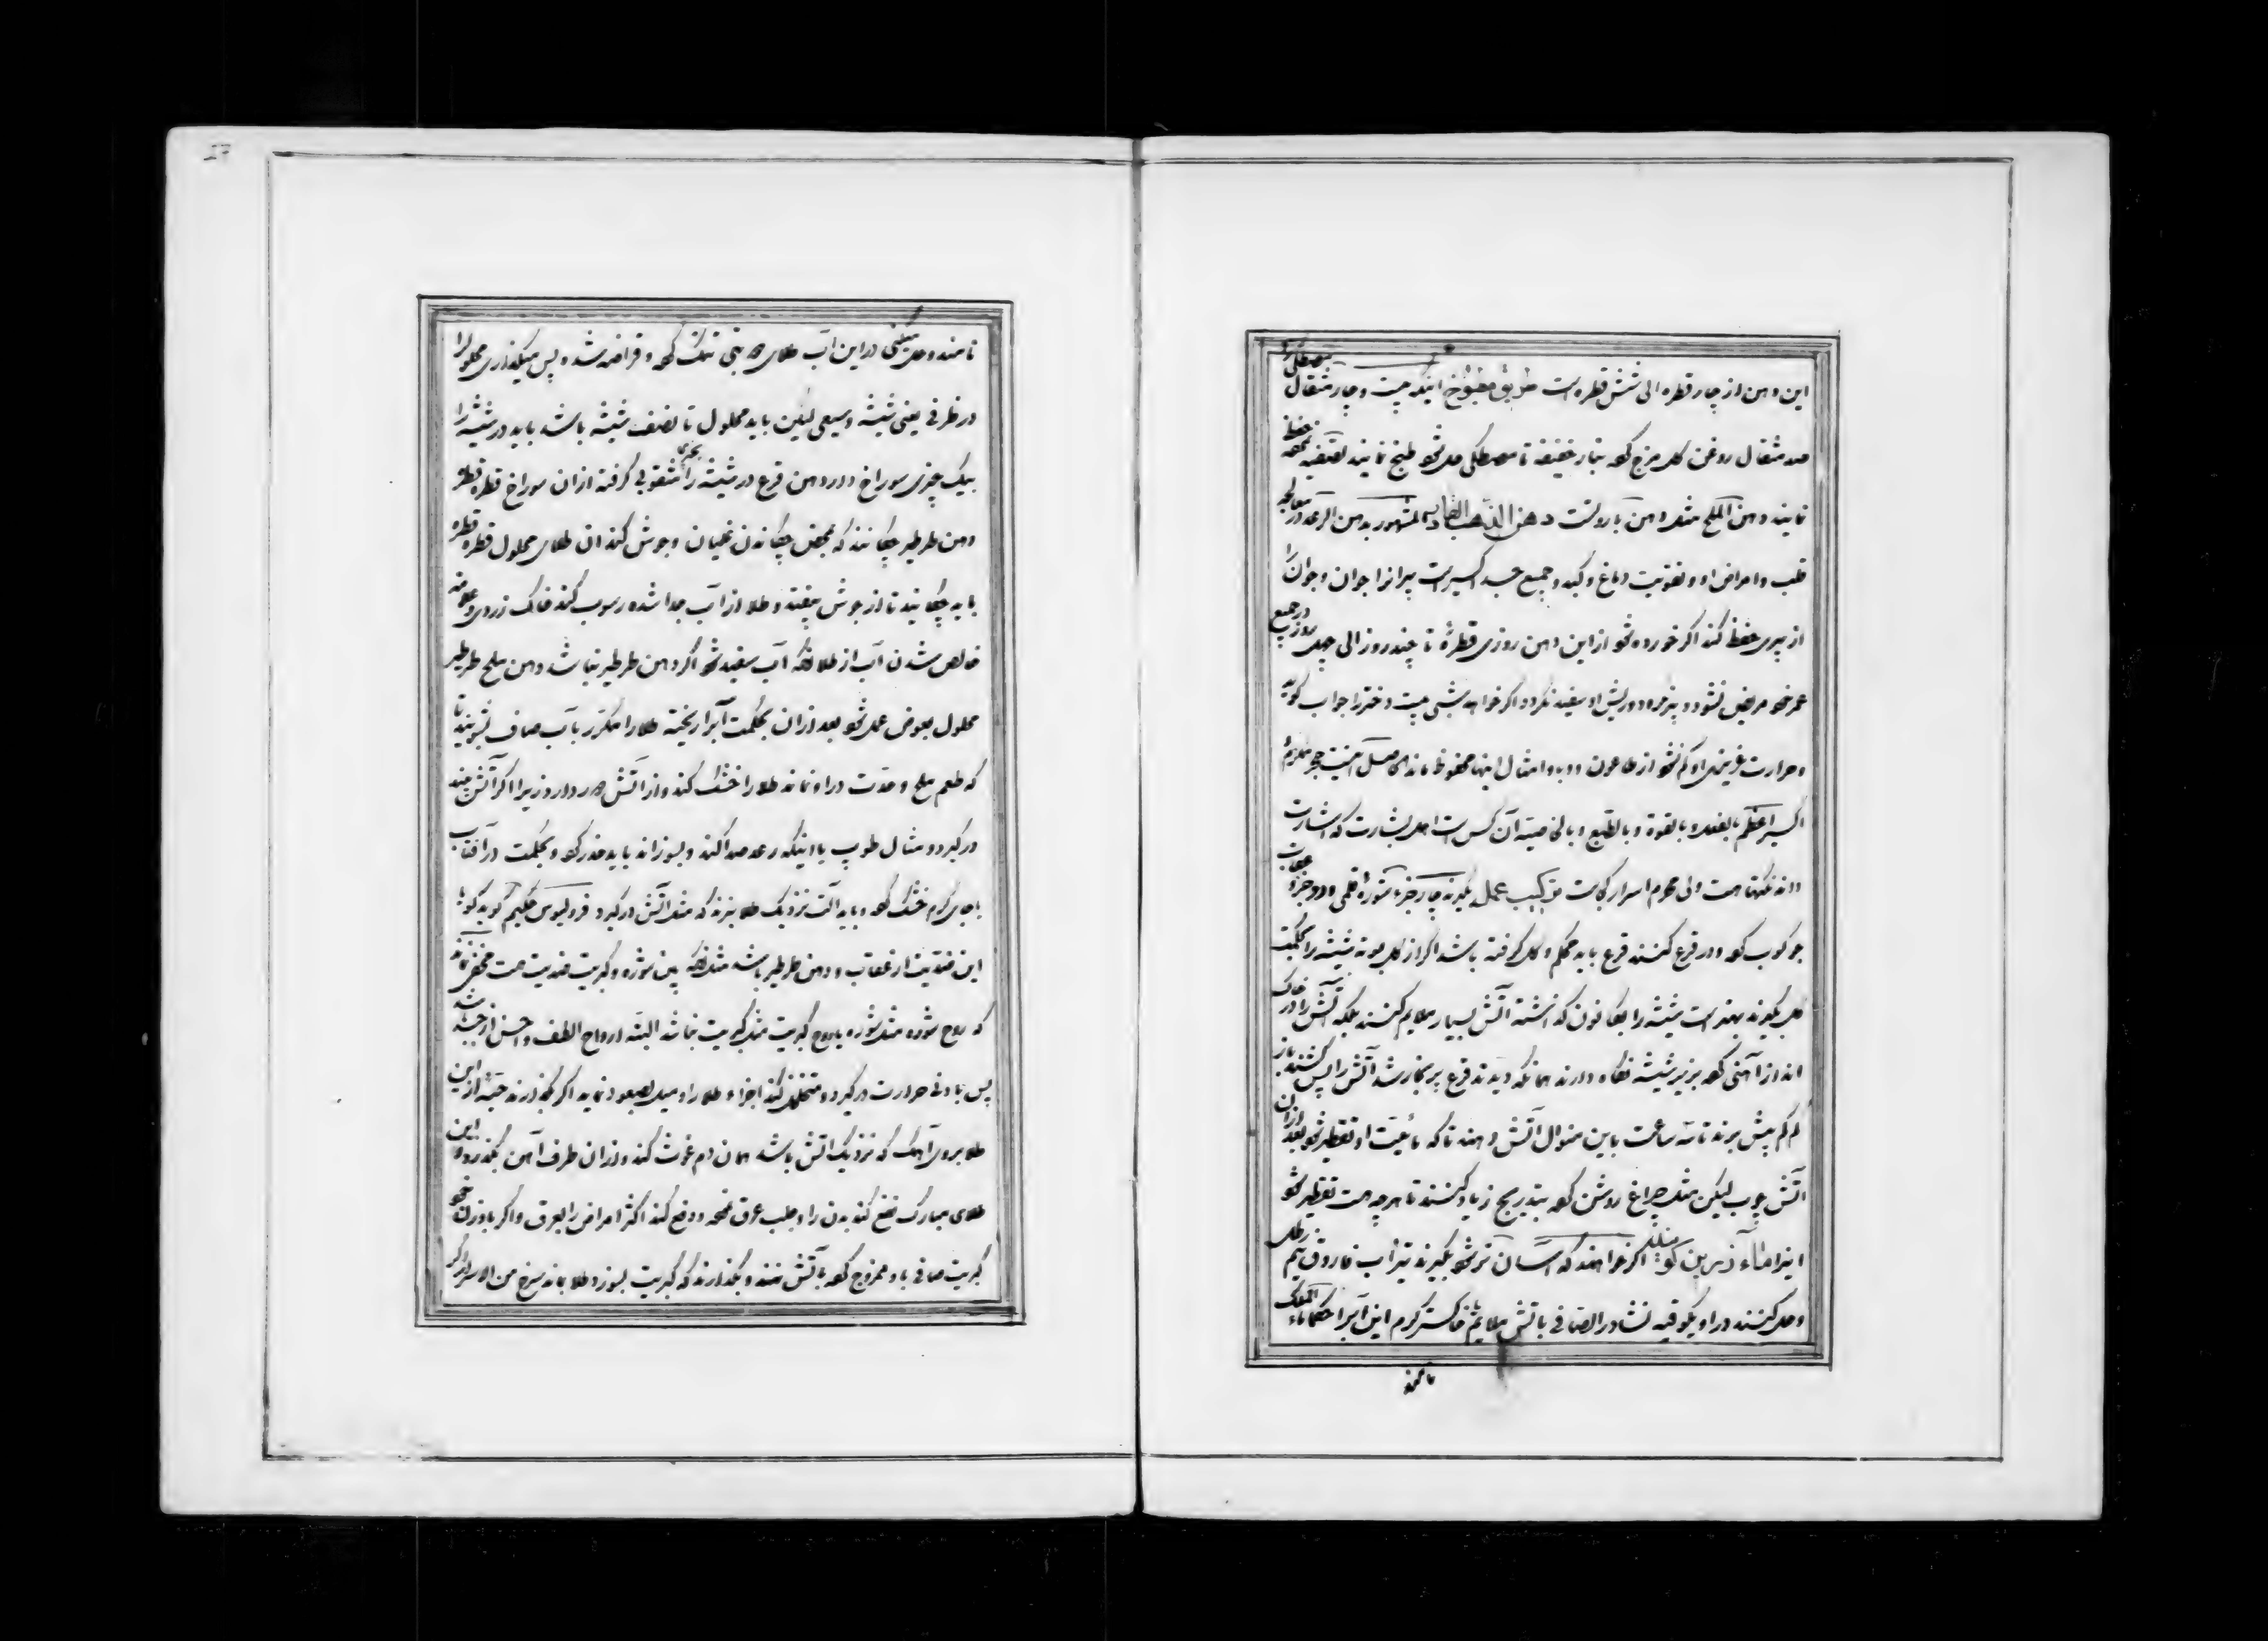 این دهن از چار قطره الی شش قطره است طریق مطبوخ اینکه بیست و چار مثقال مصطکی را
صد مثقال روغن کل مزج کهه بنار خفیفه تا مصطکی حل شو طبخ نمایند تصفیه کهه حفظ
نمایند دهن الملح مثل دهن بارودست دهن الذهب القادسیا المشهور بدهن الرعد در معالجه
قلب و امراض او و تقویت دماغ و کبد و جمیع جسد اکسیر است پیرانرا جوان و جوان را
از پیری حفظ کند اگر خورده شو از این دهن روزی قطرهٔ تا چند روز الی چهل روز پس در جمیع
عمر خو مریض نشود و پژمرده و ریش او سفید نکردد اگر خواهد بشبی بیست دختر را جواب کوید
و حرارت غریزی او کم نشو از طاعون و وبا و امثال اینها محفوظ ماند الحاصل اینست حجر مکرم
اکسیر اعظم بالفعل و بالقوة و بالطبع و بالخاصیة آن کس است اهل بشارت که اشارت
داند نکتها هست ولی محرم اسرار کجاست ترکیب عمل بگیرند چار جزء شورهٔ قلمی و دو جزء عقاب
جو کوب کهه و در قرع کنند قرع باید محکم و کل گرفته باشد اگر از کل بوته شیشه را بحکمت
کل بگیرند بهتر است شیشه را بکانون گذاشته آتش بسیار ملایم کنند بلکه آتش را در خاک
انداز آهنی کهه بزیر شیشه نگاه دارند همانکه دیدند قرع پر بخار شد آتش را پس کشند باز
کم کم پیش برند تا سه ساعت باین منوال آتش دهند تا که مائیت او تقطیر شو بعد از ان
آتش چوب لیکن مثل چراغ روشن کهه بتدریج زیاد کنند تا هر چه هست تقطیر شو
اینرا ماآء زرین کویند اگر خواهند که آسان تر شو بگیرند تیزاب فاروق نیم رطل
و حل کنند در او یکوقیه نشادر الصافی باتش ملایم یا خاکستر کرم این آبرا حکما ماء الملوک
نامند
نامند و حل میکنی در این آب طلای تنک کهه و قراضه شده پس میکذاری محلول را
در ظرفی یعنی شیشه وسیعی لیکن باید محلول تا نصف شیشه باشد باید در شیشه را
بیک چیزی سوراخ دار و دهن قرع در شیشه را بچیزی مثقوبی کرفته از ان سوراخ قطره قطره
دهن طرطیر چکانند که بمحض چکاندن غلیان و جوش کند ان طلای محلول قطره قطره
باید چکانید تا از جوش بیفتد و طلا از آب جدا شده رسوب کند خاک زردی و علامت
خالص شدن آب از طلا انکه آب سفید شو اگر دهن طرطیر نباشد دهن ملح طرطیر
محلول بعوض عمل شو بعد از ان بحکمت آبرا ریخته طلا را مکرر بآب صاف بشویند تا
که طعم ملح و حدّت در او نماند طلا را خشک کند و از آتش دور دارد زیرا اگر آتش بیند
در کیرد و مثال طوپ یا اینکه رعد صدا کند و بسوزاند باید حذر کهه و بحکمت در آفتاب
یا جای کرم خشک کهه و باید آلت نزدیک طلا نبرند که مثل آتش در کیرد قرولیوس حکیم کوید کویا
این ضدیت از عقاب و دهن طرطیر باشد مثل انکه بین شوره و کبریت ضدیت هست مخفی نماند
که روح شوره مثل شوره یا روح کبریت مثل کبریت نباشد البته ارواح الطف و احسن از جسد باشد
پس بادنی حرارت در کیرد و متخلخل کند اجزاء طلا را و میل بصعود نماید اگر بکذارند حبّهٔ از این
طلا بروی آهک که نزدیک آتش باشد همان دم غوث کند و از ان طرف آهن بکذرد و این
طلای مبارک نفع کند بدن را و جلب عرق نمهه و دفع کند اکثر امراض را بعرق و اگر باوزن خو
کبریت صافی با او ممزوج کهه بآتش نهند و بکذارند که کبریت بسوزد طلا بماند سرخ من الاسرار اگر